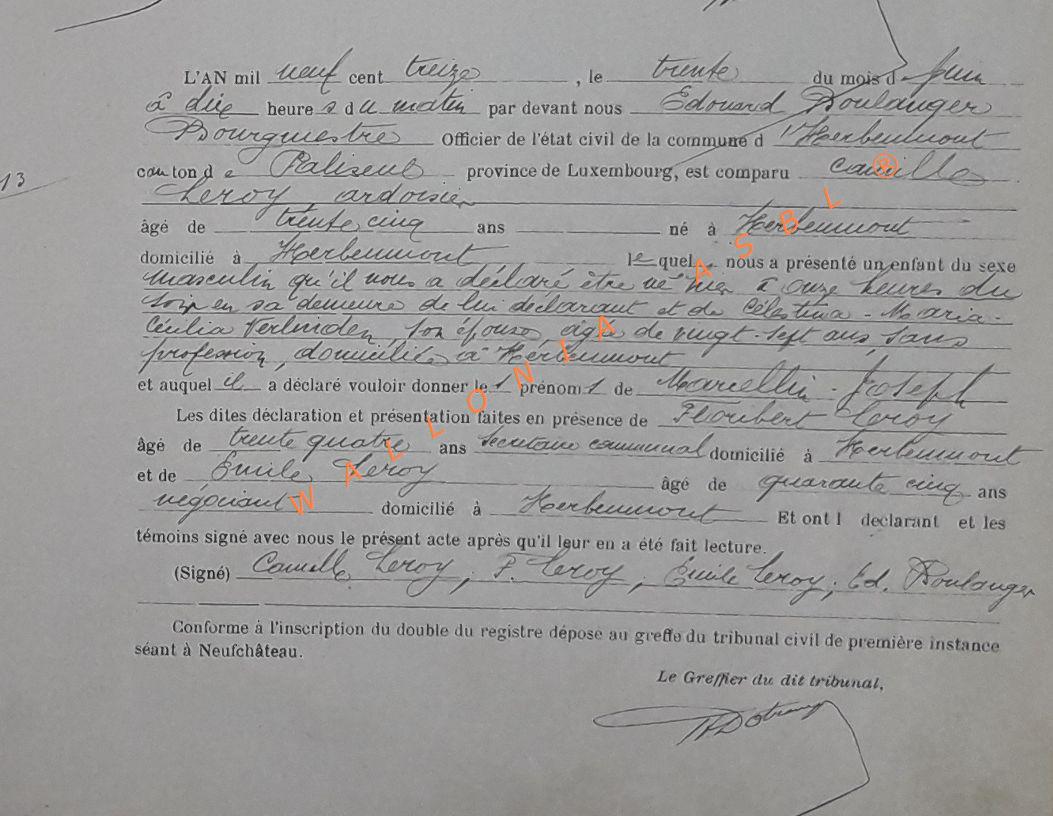 L'AN mil neuf cent treize, le trente du mois d Juin
à dix heure s du matin par devant nous Edouard Boulanger
Bourgmestre Officier de l'état civil de la commune d 'Herbeumont
canton d e Paliseul province de Luxembourg, est comparu Camille
13
Leroy ardoisier
âgé de trente cinq ans né à Herbeumont
domicilié à Herbeumont le quel nous a présenté un enfant du sexe
masculin qu'il nous a déclaré être né hier à onze heures du
soir en sa demeure de lui déclarant et de Célestina-Maria-
Cécilia Verlinden, son épouse, agée de vingt-sept ans, sans
profession, domiciliée à Herbeumont
et auquel il a déclaré vouloir donner le s prénom s de Marcellin-Joseph
Les dites déclaration et présentation faites en présence de Floribert Leroy
âgé de trente quatre ans secrétaire communal domicilié à Herbeumont
et de Émile Leroy âgé de quarante cinq ans
négociant domicilié à Herbeumont Et ont l declarant et les
témoins signé avec nous le présent acte après qu'il leur en a été fait lecture.
(Signé) Camille Leroy, F. Leroy, Émile Leroy, Ed. Boulanger
Conforme à l'inscription du double du registre déposé au greffe du tribunal civil de première instance
séant à Neufchâteau.
Le Greffier du dit tribunal,
WALLONIA ASBL ®